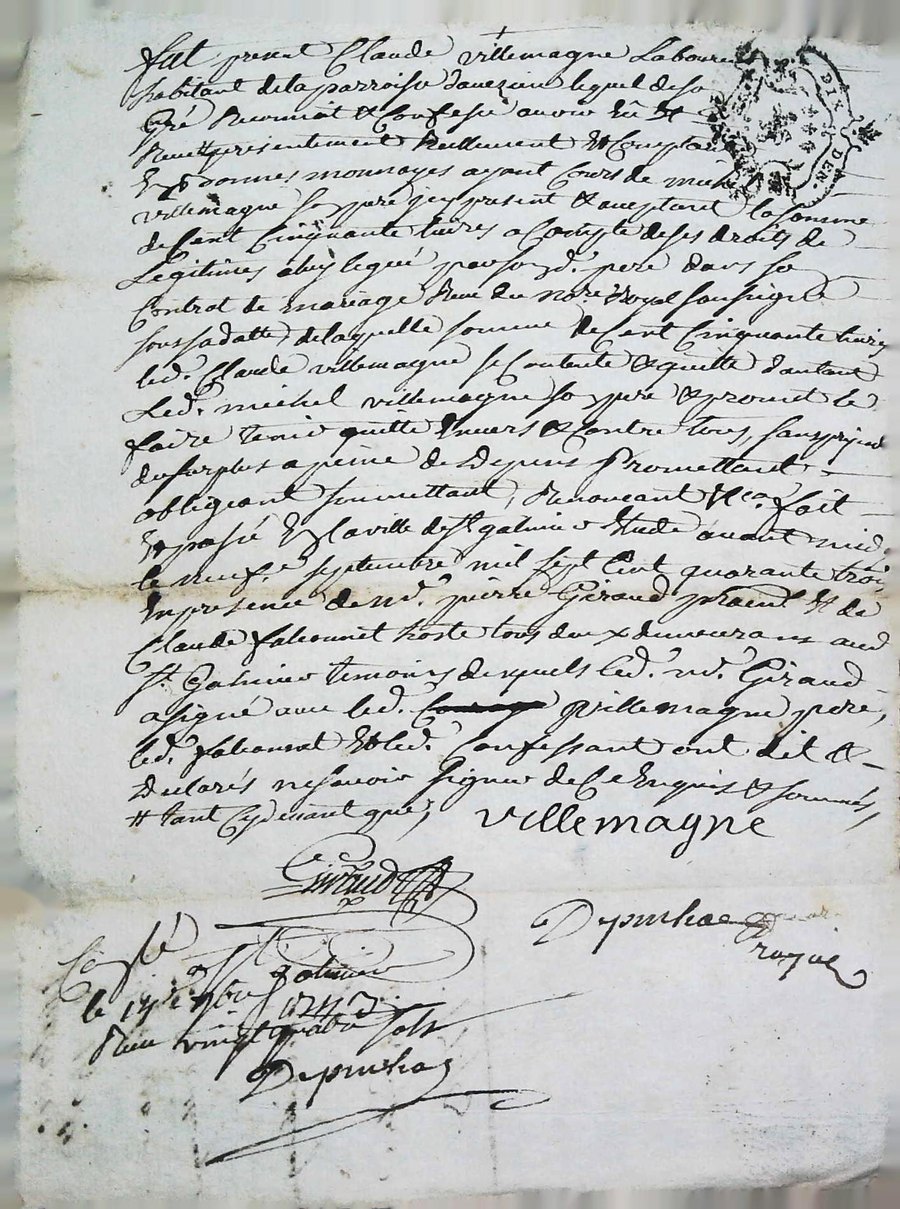 fut présent Claude villemagne Laboureur
habitant de la parroisse d'aveizieu lequel de so
gré Reconnoit & Confesse avoir Eu &
Receu présentement Reellement & Comptant
En bonnes monnoyes ayant Cours de michel
villemagne so pere icy present & acceptant la somme
de Cent Cinquante livres a Compte de ses droits de
Legitimes a luy legué par sond. pere dans so
Contrat de mariage Receu du no.re Royal soussigné
sous sa datte, de laquelle somme de Cent Cinquante livres
led. Claude villemagne se Contente & quitte d'autant
Led. michel villemagne so pere & promet le
faire tenir quitte Envers & Contre tous, sans prejud
du surplus a peine de Depens Promettant
obligeant soumettant, Renoncant &ca. fait
& passé En la ville de st galmier Etude avant midi
le neuf.e septembre mil sept Cent quarante trois
En presence de md. pierre Giraud & de
Claude hoste tous deux demeurans aud
st. Galmier temoins desquels led. md. Giraud
a signé avec led. villemagne pere,
led. & led. Confessant ont dit &
Declarés ne scavoir signer de Ce Enquis & sommés
& tant Cy devant que, villemagne
Giraud
royal
st galmier
le 1743
Receu vingt quatre sols
DIX DEN.